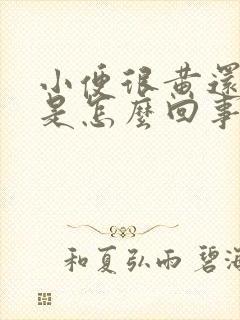 小便很黃還
是怎麼回事
和夏弘雨 碧海